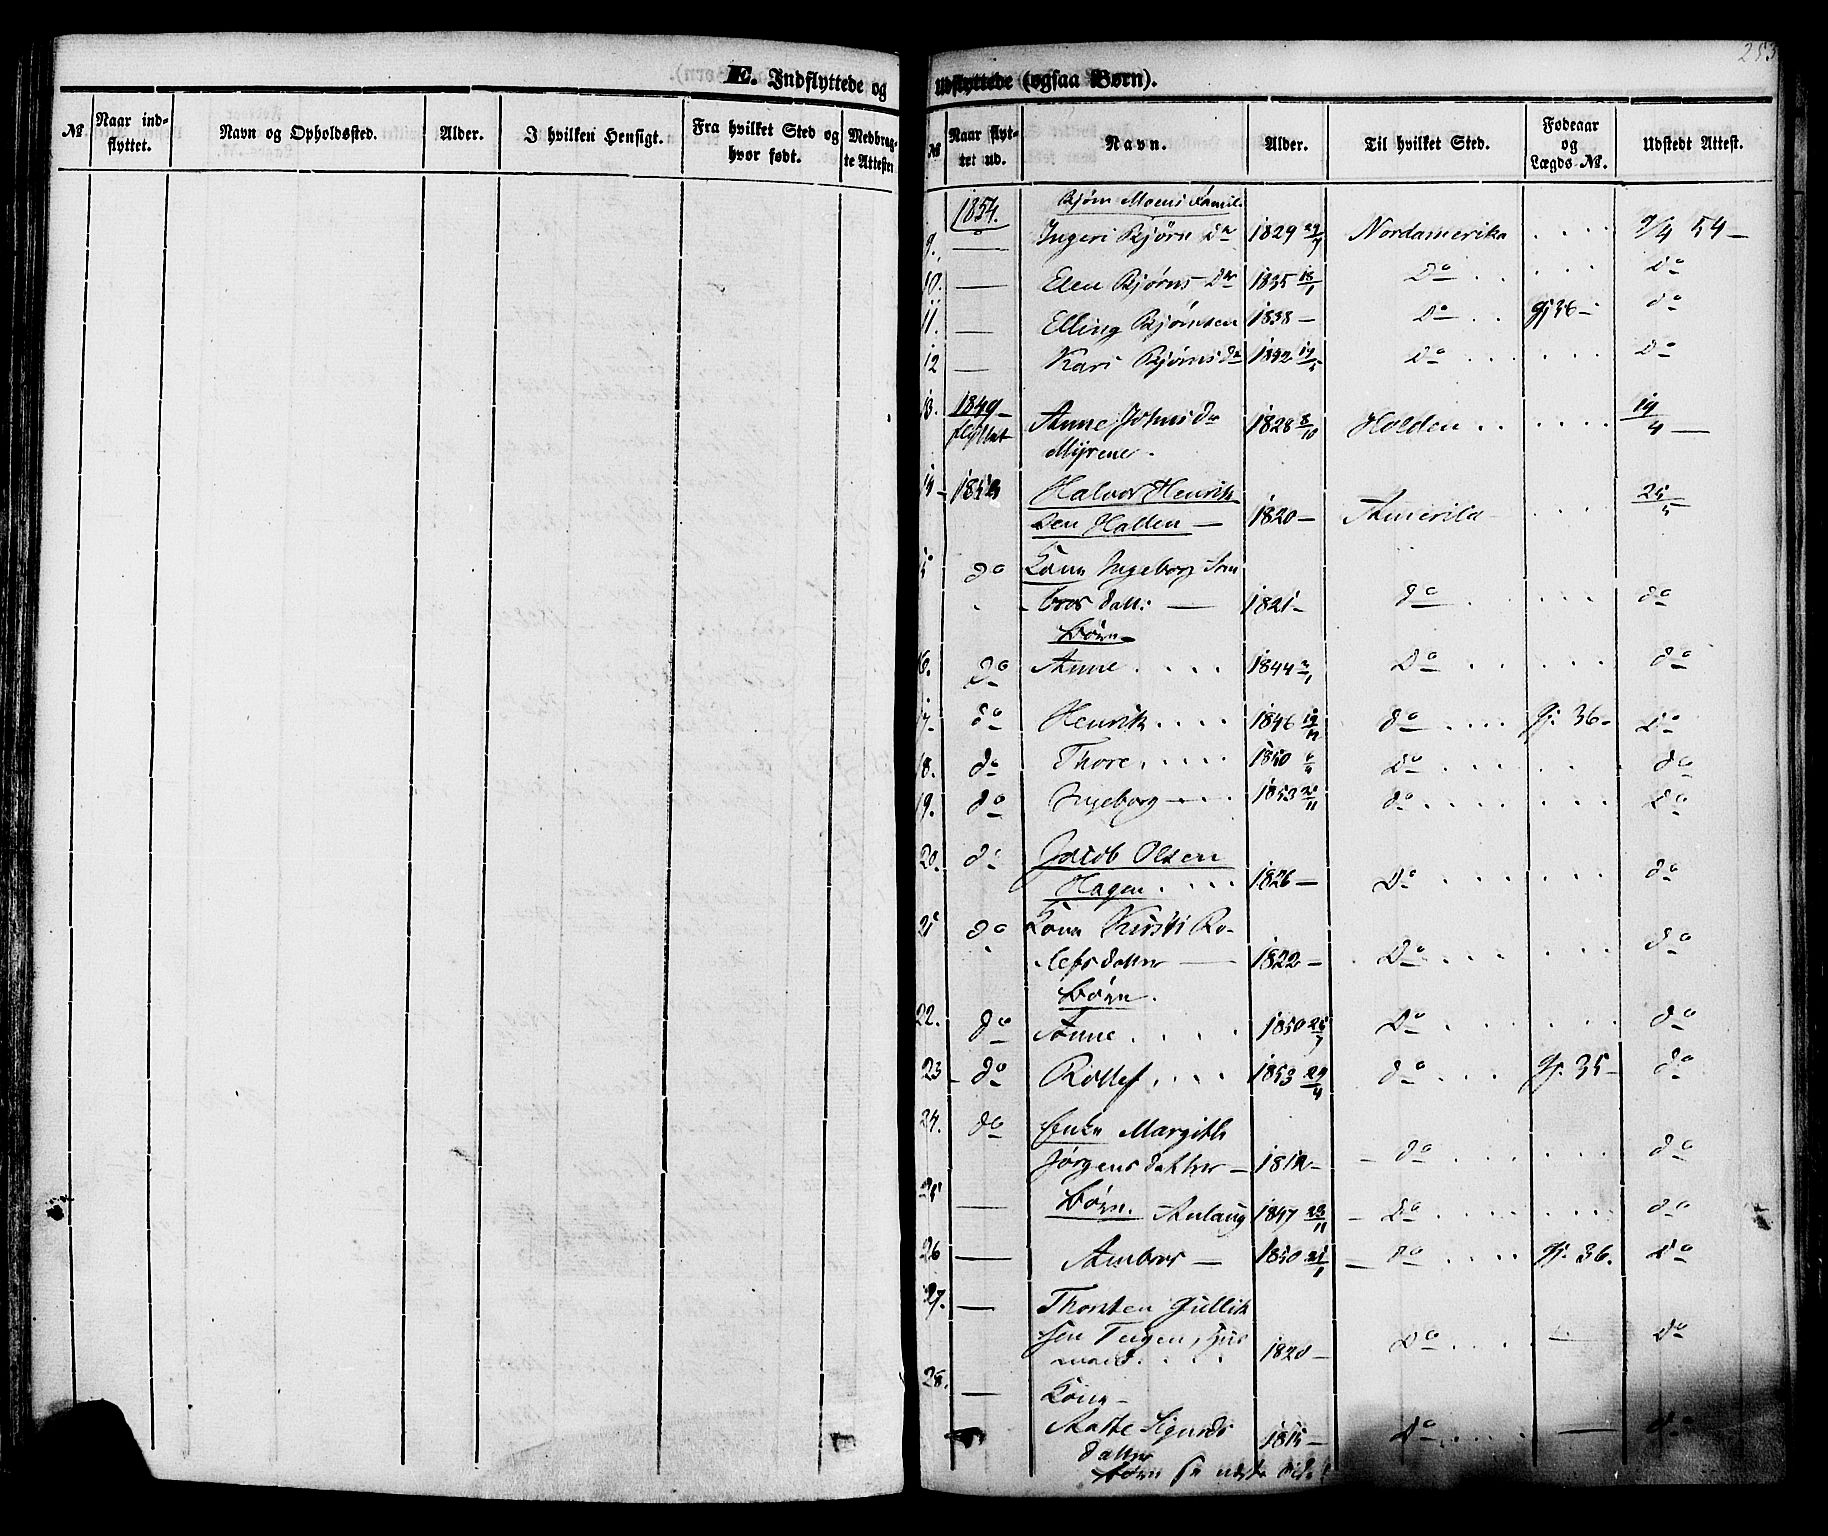 253
E. Indflyttede og
Udflyttede (ogsaa Børn).
№
Naar ind-
flyttet.
Navn og Opholdssted.
Alder.
I hvilken Hensigt.
Fra hvilket Sted og
hvor født.
Medbrag-
te Attester
№
Naar flyt-
tet ud.
Navn.
Alder.
Til hvilket Sted.
Fødeaar
og
Lægds №.
Udstedt Attest.
1854.
Bjørn Moens Famili
9. — Ingeri Bjørns Dr 1829 29/7 Nordamerika 9/4 54 —
10. — Elen Bjørns Dr 1835 18/1 Do Do
11. — Elling Bjørnsen 1838 — Do gj 36 — do
12 — Kari Bjørns Dr 1842 19/5 Do Do
13. 1849 —
flyttet Anne Johns Dr 1828 8/10 Holden 19/4 —
Myrene.
14 — 1854 Halvor Henrik
sen Hallen — 1820 — Amerika 25/5
15 do Kone Ingeborg Am
bros datt: — 1821 — do do
Børn
16. do Anne 1844 2/1 Do do
17. do Henrik 1846 19/11 do gj. 36 — Do
18. do Thore 1850 6/4 Do do
19. do Ingeborg 1853 20/11 do Do
20. do Jacob Olsen
Hagen 1826 — Do do
21 do Kone Kirsti Ro-
lefsdatter — 1822 — Do do
Børn.
22. do Anne 1850 25/7 Do do
23 — do Rollef 1853 29/4 do gj. 35 — do
24. do Enke Margith
Jørgensdatter — 1812 — do do
25 — Børn. Anlaug 1847 23/11 — Do do
26 — Ambros — 1850 21/1 — Do gj. 36. Do
27. — Thorsten Gullik
sen Teigen, Huus
mand. 1820 — Do — Do
28. — Kone —
Aaste Sigurds
datter 1815 — Do — do
Børn se næste side!